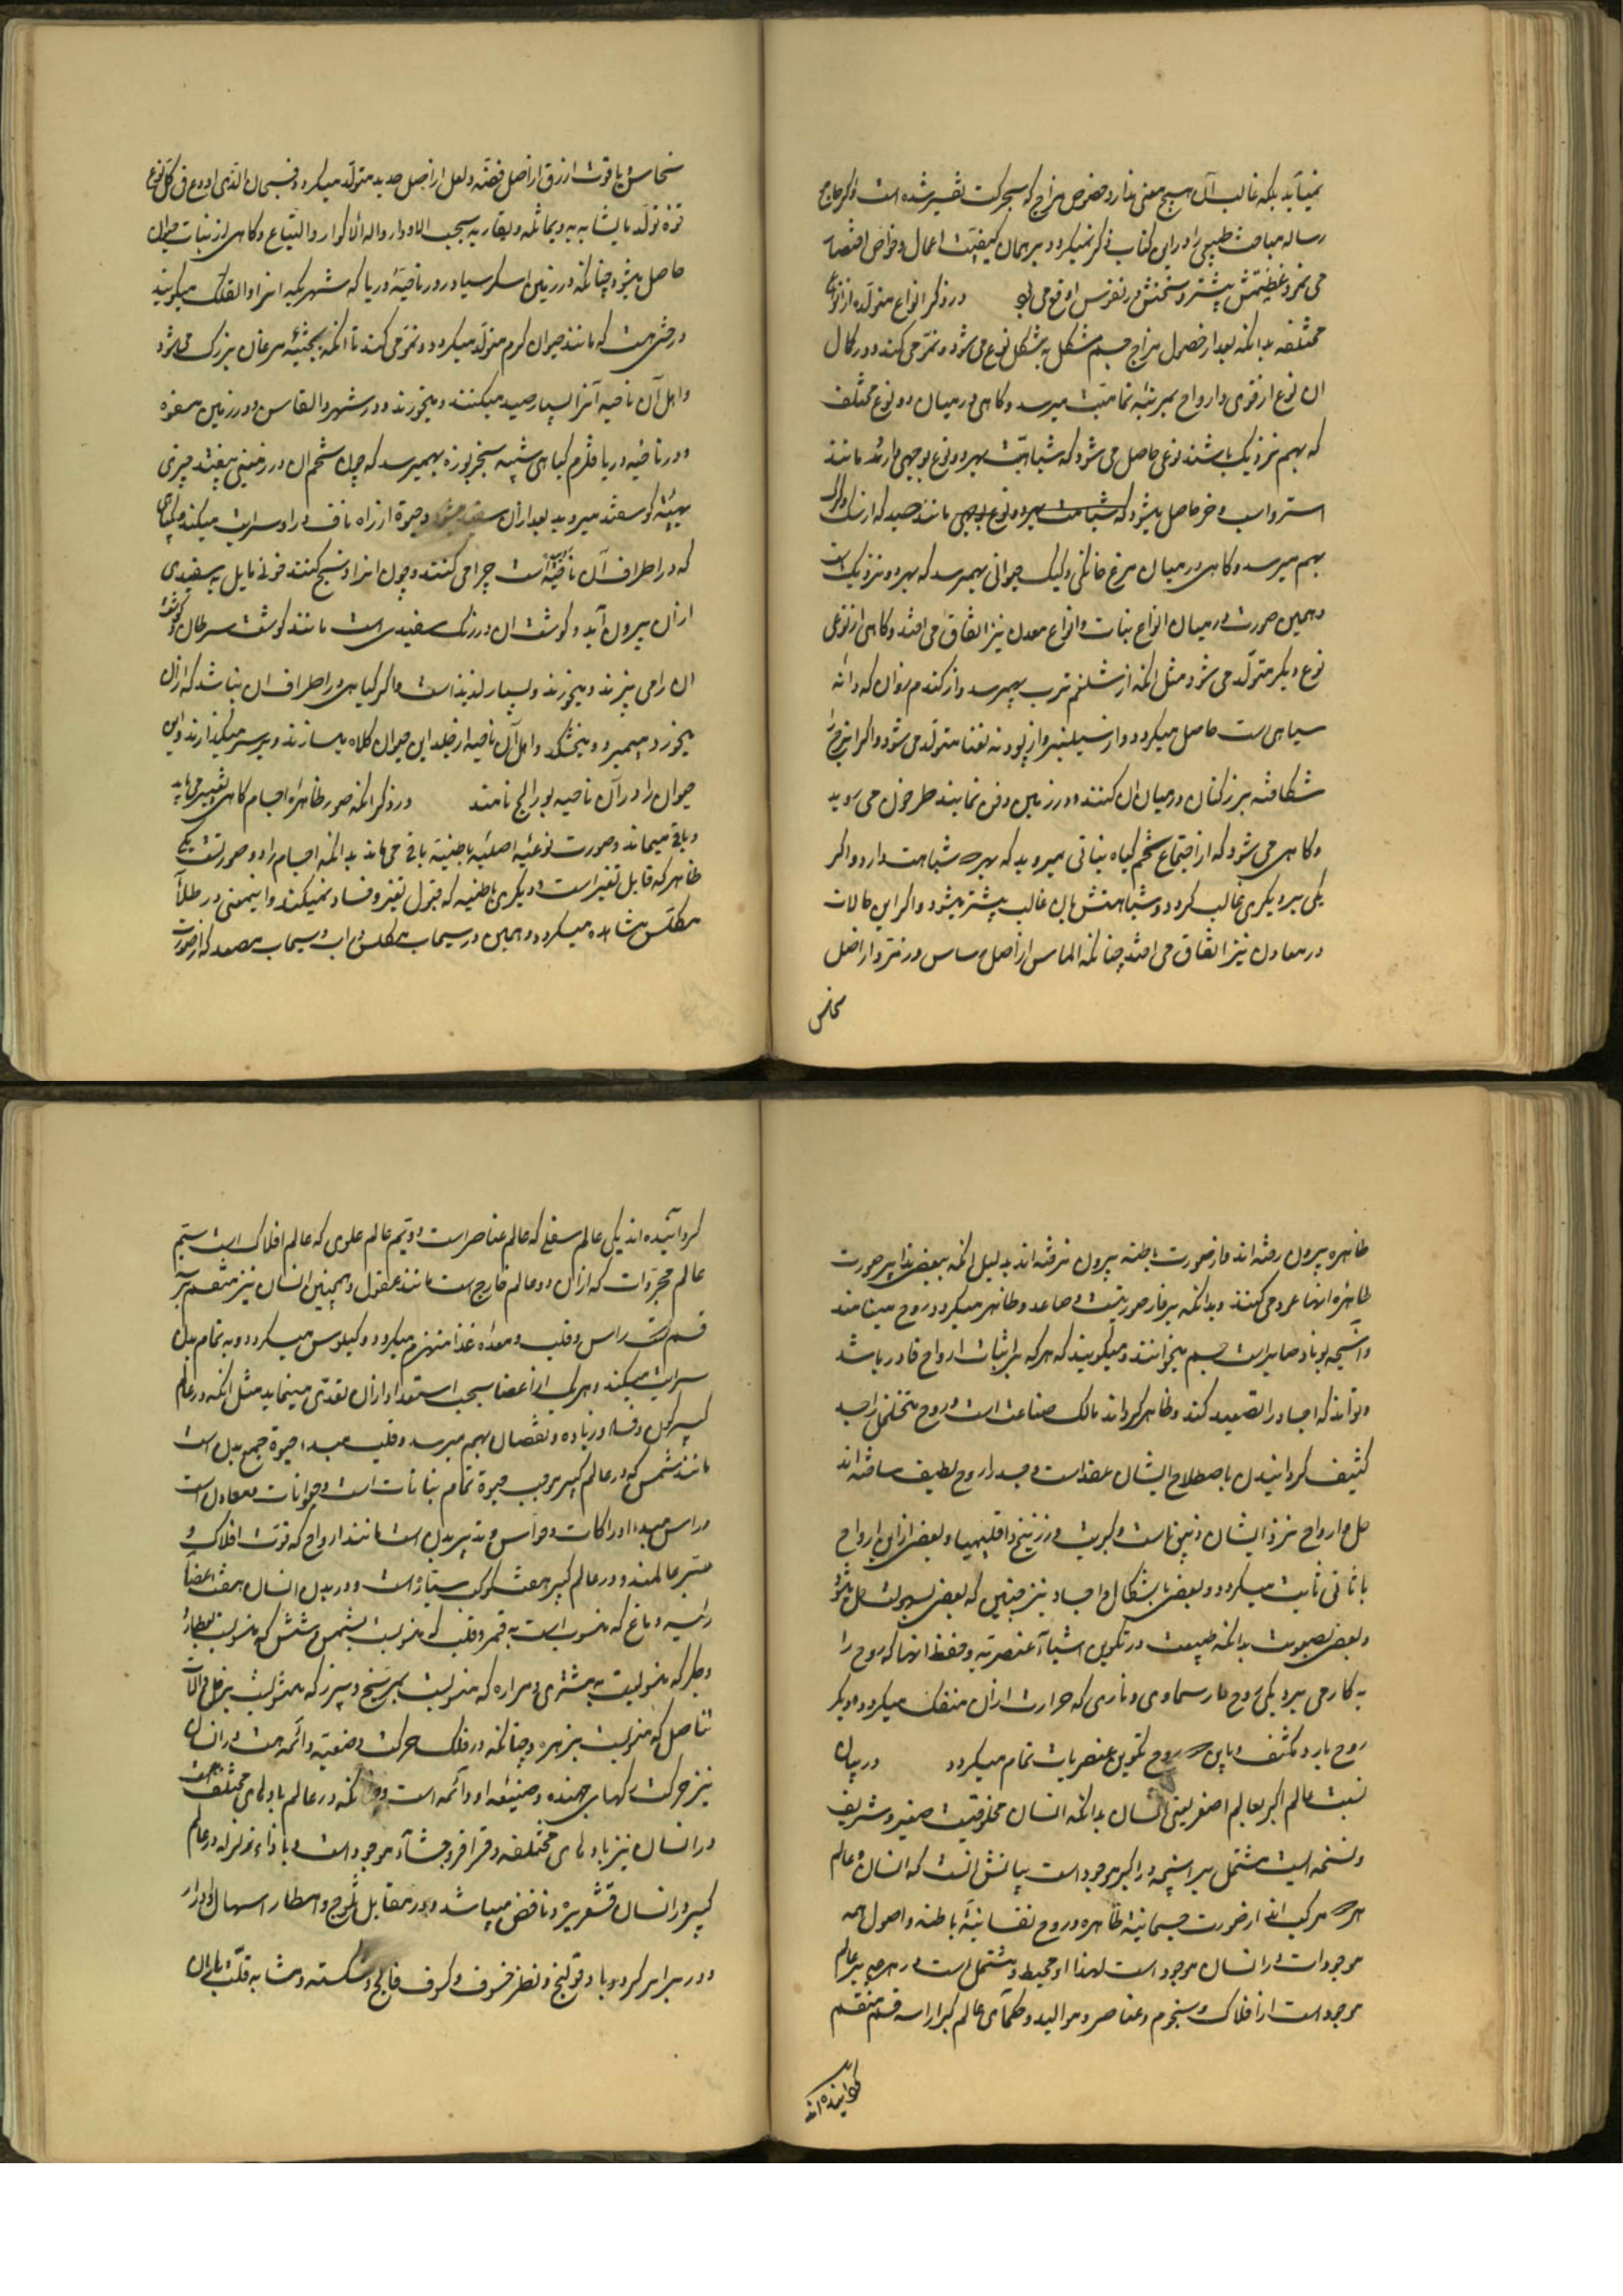 نمی‌آید بلکه غالب آن هیچ معنی ندارد خصوص مزاج که بحرکت تفسیر شده است
رساله مباحث طبیعی را در این کتاب ذکر نمیکردد بر همان کیفیت اعمال و خواص اقتصار
می نمود در ذکر انواع متولده از انواع
مختلفه بدانکه بعد از حصول مزاج جسم مشکل به شکل نوع می شود و نمو می کند و در کمال
ان نوع از قوی و ارواح بمرتبه تمامیت میرسد و کاهی در میان دو نوع مختلف
که بهم نزدیک باشند نوعی حاصل می شود که شباهت بهر دو نوع بوجهی دارند مانند
استر و اسب و خر حاصل میشود که شباهت بهر دو نوع بوجهی مانند صید که از سک و کرک
بهم میرسد و کاهی در میان مرغ خانکی و کبک حیوانی بهمرسد که بهر دو نزدیک است
و همین صورت در میان انواع نبات و انواع معدن نیز اتفاق می افتد و کاهی از نوعی
نوع دیکر متولد می شود مثل انکه از شلغم ترب بهمرسد و از کندم روان که دانه
سیاهی است حاصل میکردد و از سیسنبر و از پودنه نعنا متولد می شود و اکر
شکافته بزر کتان در میان ان کنند و در زمین دفن نمایند طرخون می روید
و کاهی می شود که از اجتماع تخم کیاه نباتی میروید که بهر شباهت دارد و اکر
یکی بر دیکری غالب کردد و شباهتش بان غالب بیشتر میشود و اکر این حالات
در معادن نیز اتفاق می افتد چنانکه الماس از اصل و از اصل
نحاس
نحاس یاقوت ازرق از اصل فضه و لعل از اصل حدید متولد میکردد فسبحان الذی اودع فی کل نوع
قوه تولد ما یشابه به و یماثله و یقاربه بحسب الادوار و الاکوار و کاهی از نبات حیوان
حاصل میشود چنانکه در زمین در ناحیه دریا که شهر یکیه انرا میکویند
درختی هست که مانند حیوان کرم متولد میکردد و نمو می کند تا انکه بجثه مرغان بزرک می شود
و اهل آن ناحیه آنرا بسیار صید میکنند و میخورند و در شهر و در زمین
و در ناحیه دریا قلزم کیاهی شبیه بخربوزه بهمیرسد که چون تخم ان در زمینی بیفتد چیزی
بهیئة کوسفند میروید بعد از آن و حیوة از راه ناف در او سرایت میکند
که در اطراف آن ناحیه است چرا می کنند و چون انرا ذبح کنند خونی مایل به سفیدی
از ان بیرون آید و کوشت ان در رنک سفیدی است مانند کوشت سرطان
ان را می پزند و میخورند و بسیار لذیذ است و اکر کیاهی در اطراف ان نباشد که از ان
بخورد میمیرد و میخشکد و اهل آن ناحیه از جلد این حیوان کلاه میسازند و بر سر میکذارند و این
حیوان را در آن ناحیه نامند در ذکر انکه صور ظاهره اجسام کاهی تغییر می یابد
و باقی میماند و صورت نوعیه اصلیه باطنیه باقی می ماند بدانکه اجسام را دو صورت یکی
ظاهر که قابل تغیر است و دیکری باطنیه که قبول تغیر و فساد نمیکند و اینمعنی در طلاء
مکلس مشاهده میکردد و همین در سیماب مکلس و اب و سیماب مصعد که از صورت
ظاهره بیرون رفته اند و از صورت باطنه بیرون نرفته اند بدلیل انکه ببعضی تدابیر صورت
ظاهره انها عود می کنند و بدانکه و صاعد و ظاهر میکردد روح مینامند
و آنچه صابر است جسم میخوانند و میکویند که هرکه بر اثبات ارواح قادر باشد
و تواند که اجساد را تصعید کند و ظاهر کرداند مالک صناعت است و روح متخلخل را جسد
کثیف کردانیدن باصطلاح ایشان عقد است و جسد را روح لطیف ساختن
حل و ارواح نزد ایشان زیبق است و کبریت و زرنیخ و اقلیمیا و بعضی از این ارواح
ثابت میکردد و بعضی اشکال و اجساد نیز چنین که بعضی بسهولت حل میشود
و بعضی بصعوبت بدانکه طبیعت در تکوین اشیاء عنصریه و حفظ انها که روح را
به کار می برد یکی روح حار سماوی و ناری که حرارت از ان منفک نمیکردد و دیکر
روح بارد مکثف و باین روح تکوین عنصریات تمام میکردد در بیان
نسبت عالم اکبر بعالم اصغر یعنی انسان بدانکه انسان مخلوقیست صغیر و شریف
و نسخه ایست مشتمل بر آنچه در اکبر موجود است بیانش آنست که انسان و عالم
هر مرکب اند از صورت جسمانیه ظاهره و روح نفسانیه باطنه و اصول همه
موجودات در انسان موجود است لهذا او محیط و مشتمل است در هرچه در عالم
موجود است از افلاک و نجوم و عناصر و موالید و حکما عالم کبیر را سه قسم منقسم
کردانیده اند
کردانیده اند یکی عالم سفلی که عالم عناصر است دویم عالم علوی که عالم افلاک است سیم
عالم مجردات که از ان دو عالم خارج است مانند عقول و همچنین انسان نیز منقسم بر
قسم راس و قلب و معده غذا منهزم میکردد و کیلوس میکردد و به تمام بدن
سرایت میکند و هر یک از اعضا بحسب استعداد از ان تغذی مینماید مثل انکه در عالم
کبیر کون و فساد و زیاده و نقصان بهم میرسد و قلب مبداء حیوة جمیع بدن است
مانند شمس که در عالم کبیر موجب حیوة تمام نباتات است و حیوانات و معادن است
و راس مبداء ادراکات و حواس و تدبیر بدن است مانند ارواح که قوت افلاک و
مدبر عالمند و در عالم کبیر هفت کوکب سیاره است و در بدن انسان هفت اعضا
رئیسه دماغ که منسوب است به قمر و قلب که منسوبست بشمس و شش که منسوبست بعطارد
و جکر که منسوبست به مشتری و مراره که منسوبست بمریخ و سپرز که منسوبست بزحل و آلات
تناسل که منسوبست بزهره و چنانکه در فلک حرکت وضعیه دائمه است در انسان
نیز حرکت رکهای جهنده و دائمه است و چنانکه در عالم بادهای مختلف است
در انسان نیز بادهای مختلفه و قراقر و موجود است و بازاء زلزله در عالم
کبیر در انسان قشعریره و نافض میباشد و در مقابل ثلوج و امطار اسهال و ادرار
و در برابر کردباد قولنج و نظر خسوف و کسوف فالج و سکته و مشابه قلت باران